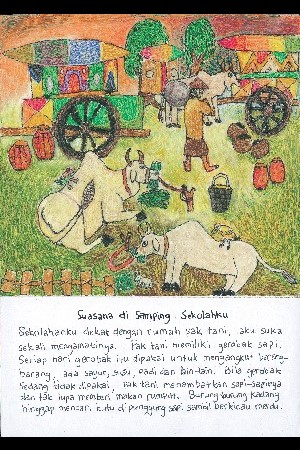 Suasana di Samping Sekolahku
Sekolahanku dekat dengan rumah pak tani, aku suka
sekali mengamatinya. Pak tani memiliki gerobak sapi.
Setiap hari gerobak itu dipakai untuk mengangkut barang-
barang, ada sayur, susu, padi dan lain-lain. Bila gerobak
sedang tidak dipakai, Pak tani menambatkan sapi-sapinya
dan tak lupa memberi makan rumput. Burung-burung kadang
hinggap mencari kutu di punggung sapi sambil berkicau merdu.